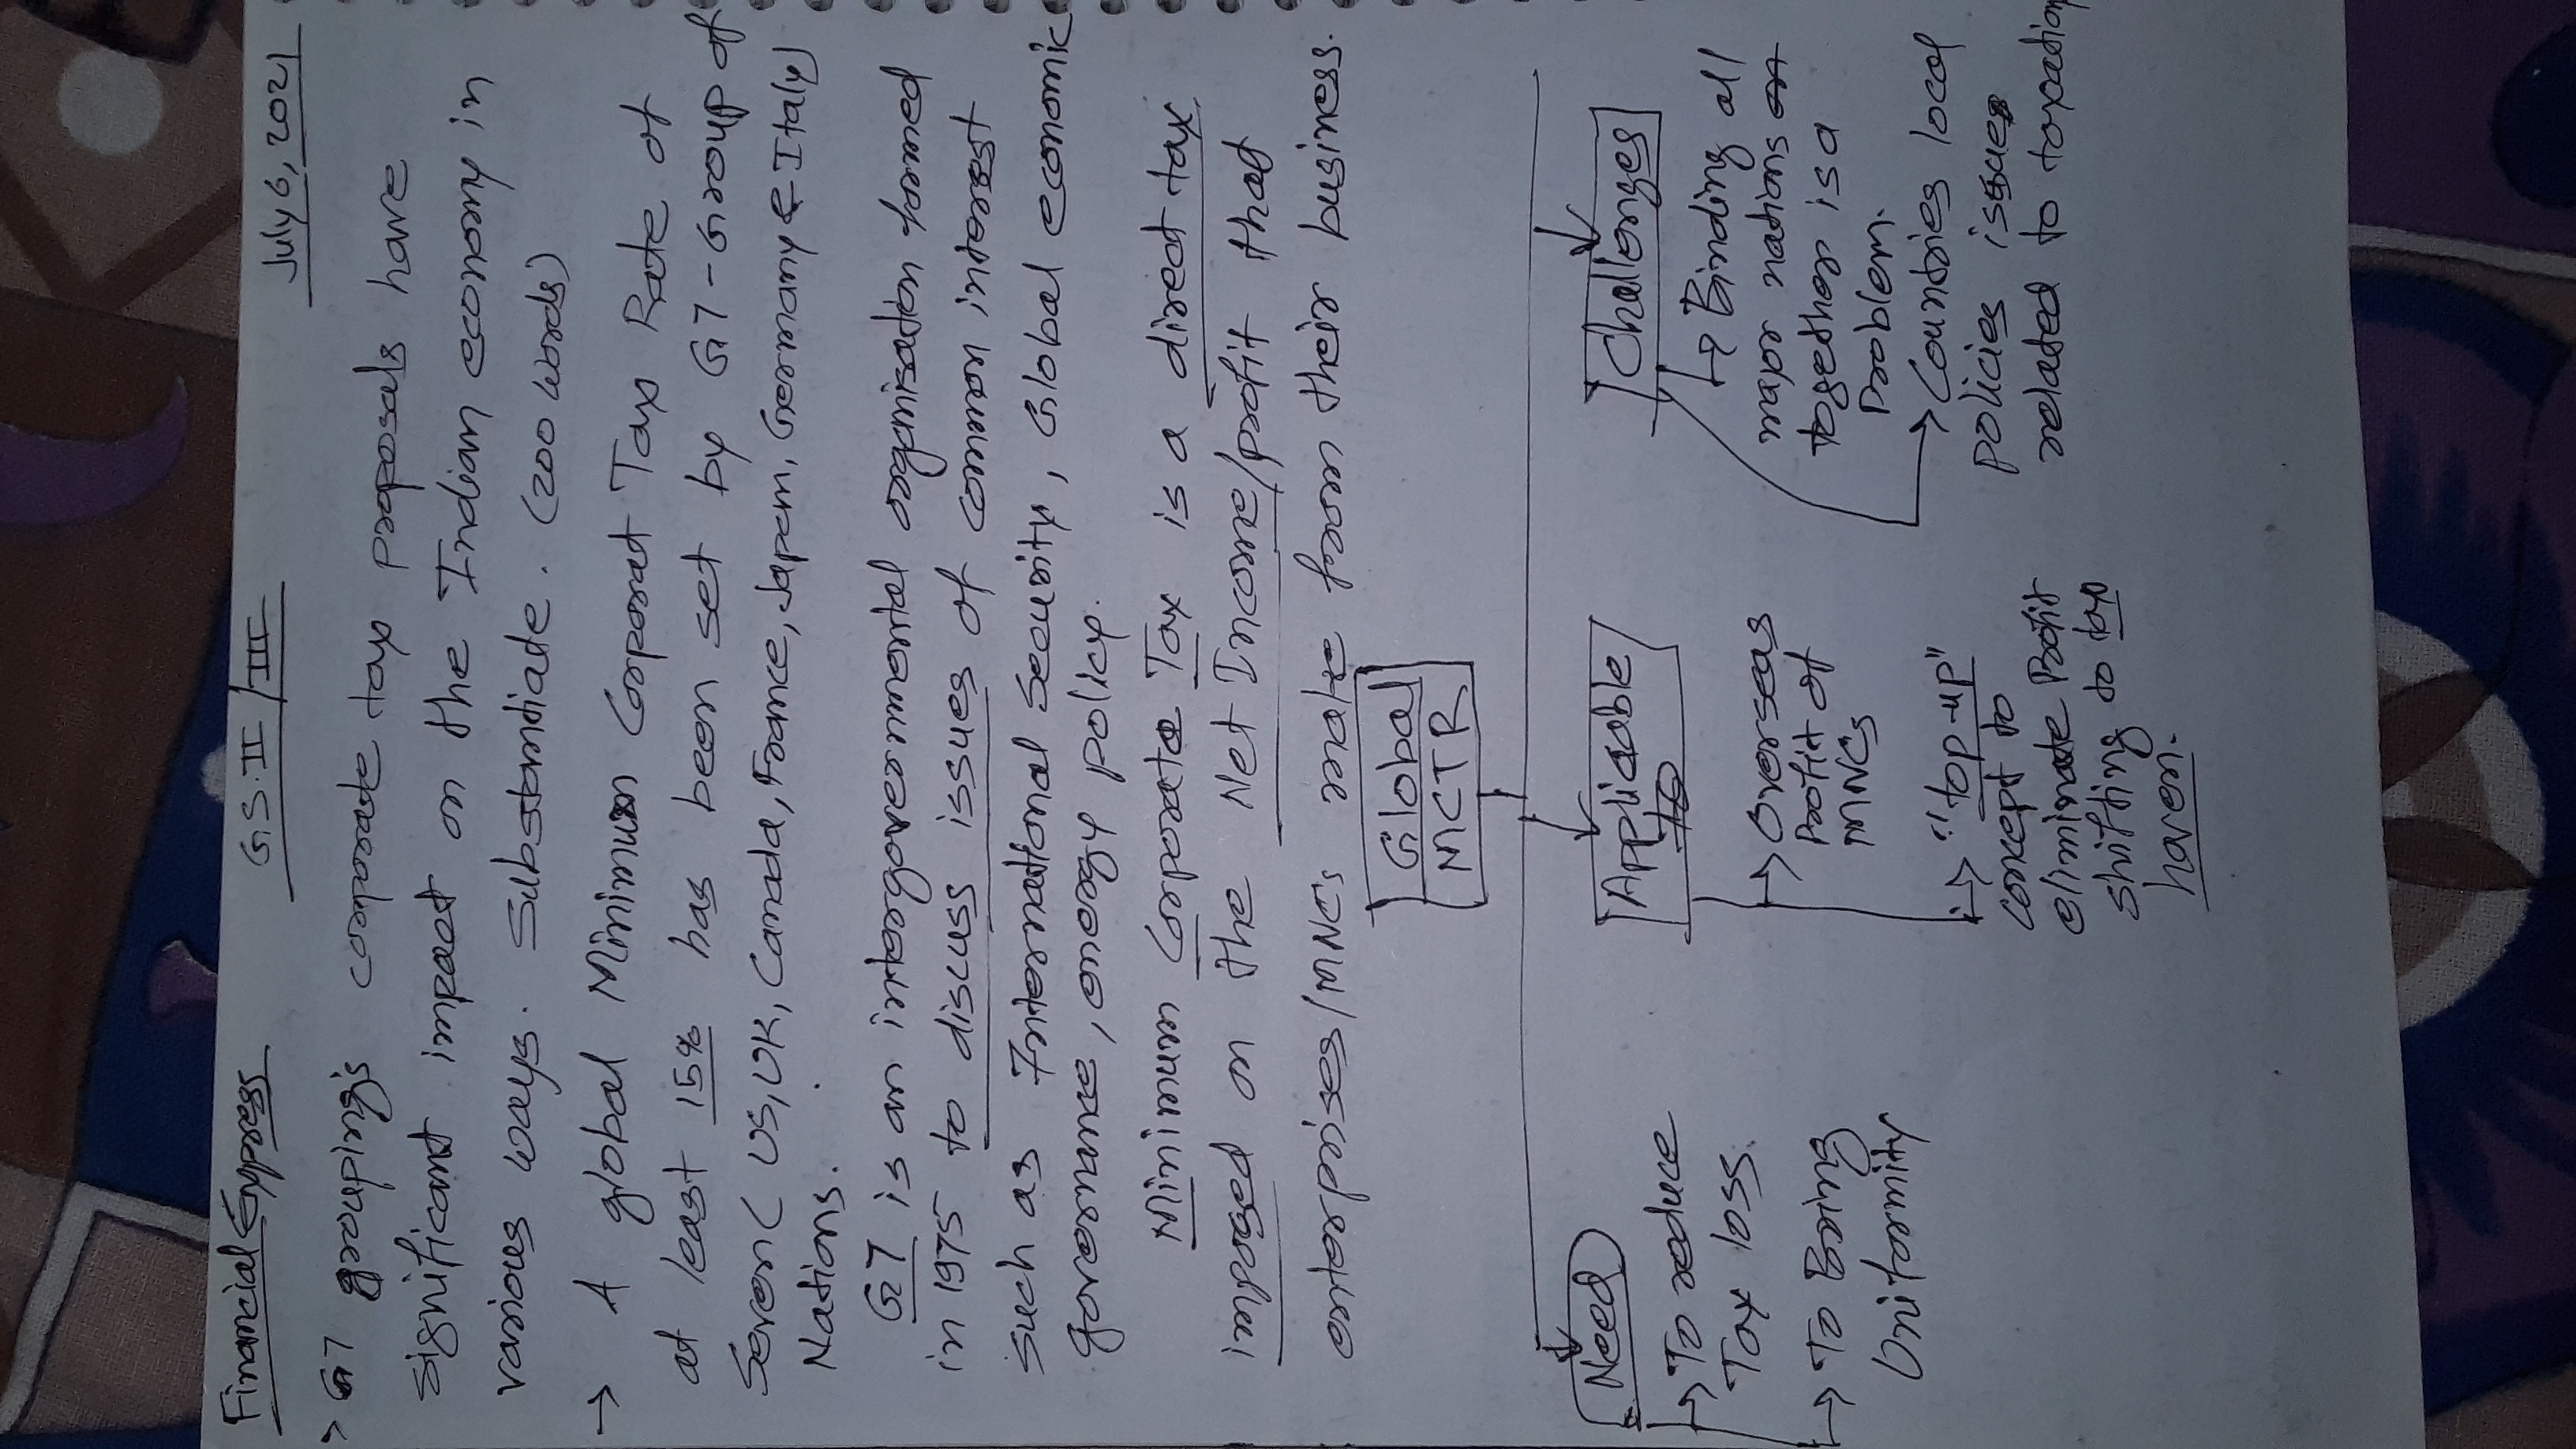 Financial Express GS.II/III July 6, 2021
> G7 grouping's corporate tax proposals have
significant impact on the Indian economy in
various ways. Substantiate. (200 words)
→ A global Minimum Corporat Tax Rate of
at least 15% has been set by G7-Group of
Seven (US, UK, Canada, France, Japan, Germany & Italy)
Nations.
G7 is an intergovernmental organisation formed
in 1975 to discuss issues of common interest
such as International Security, Global economic
governance, energy policy.
Minimum Corporate Tax is a direct tax
imposed on the Net Income/profit that
corporates/MNCs make from their business.
Global
MCTR
Need
→ To reduce
Tax loss.
→ To Bring
Uniformity
Applicable
to
→ Overseas
Profit of
MNCs
→ "top-up"
concept to
eliminate Profit
shifting to tax
haven.
Challenges
→ Binding all
major nations
together is a
Problem.
→ Countries local
policies issues
related to taxation